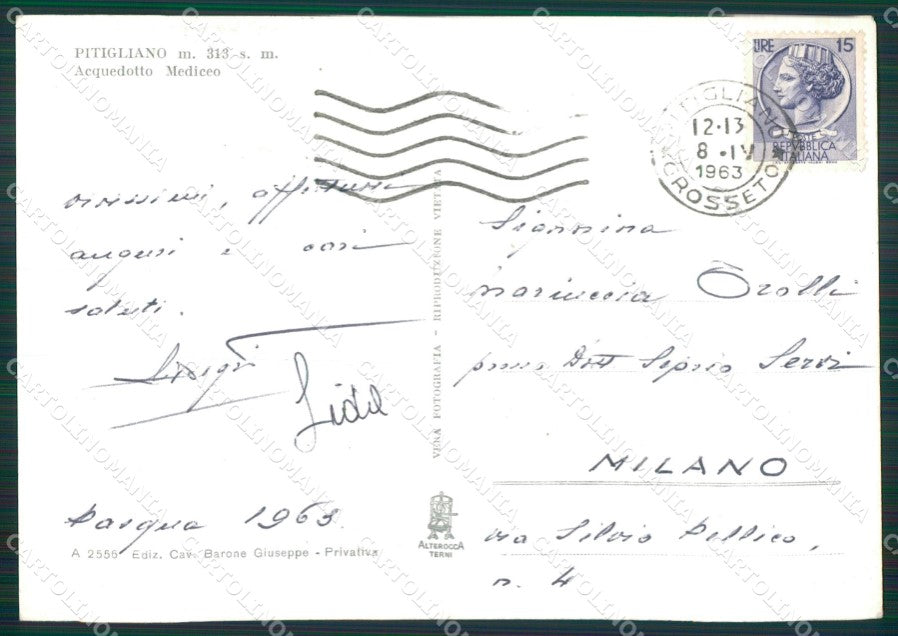 PITIGLIANO m. 313 s. m.
Acquedotto Mediceo
LIRE 15
POSTE
REPVBBLICA
ITALIANA
PITIGLIANO
12·13
8·IV
1963
GROSSETO
vivissimi, affettuosi
auguri e cari
saluti.
Luigi
Lidel
Pasqua 1963
A 2556 Ediz. Cav. Barone Giuseppe - Privativa
VERA FOTOGRAFIA - RIPRODUZIONE VIETATA
ALTEROCCA
TERNI
Giannina
Orolli
presso Dott Servi
MILANO
via Silvio Pellico,
n. 4
CARTOLINOMANIA